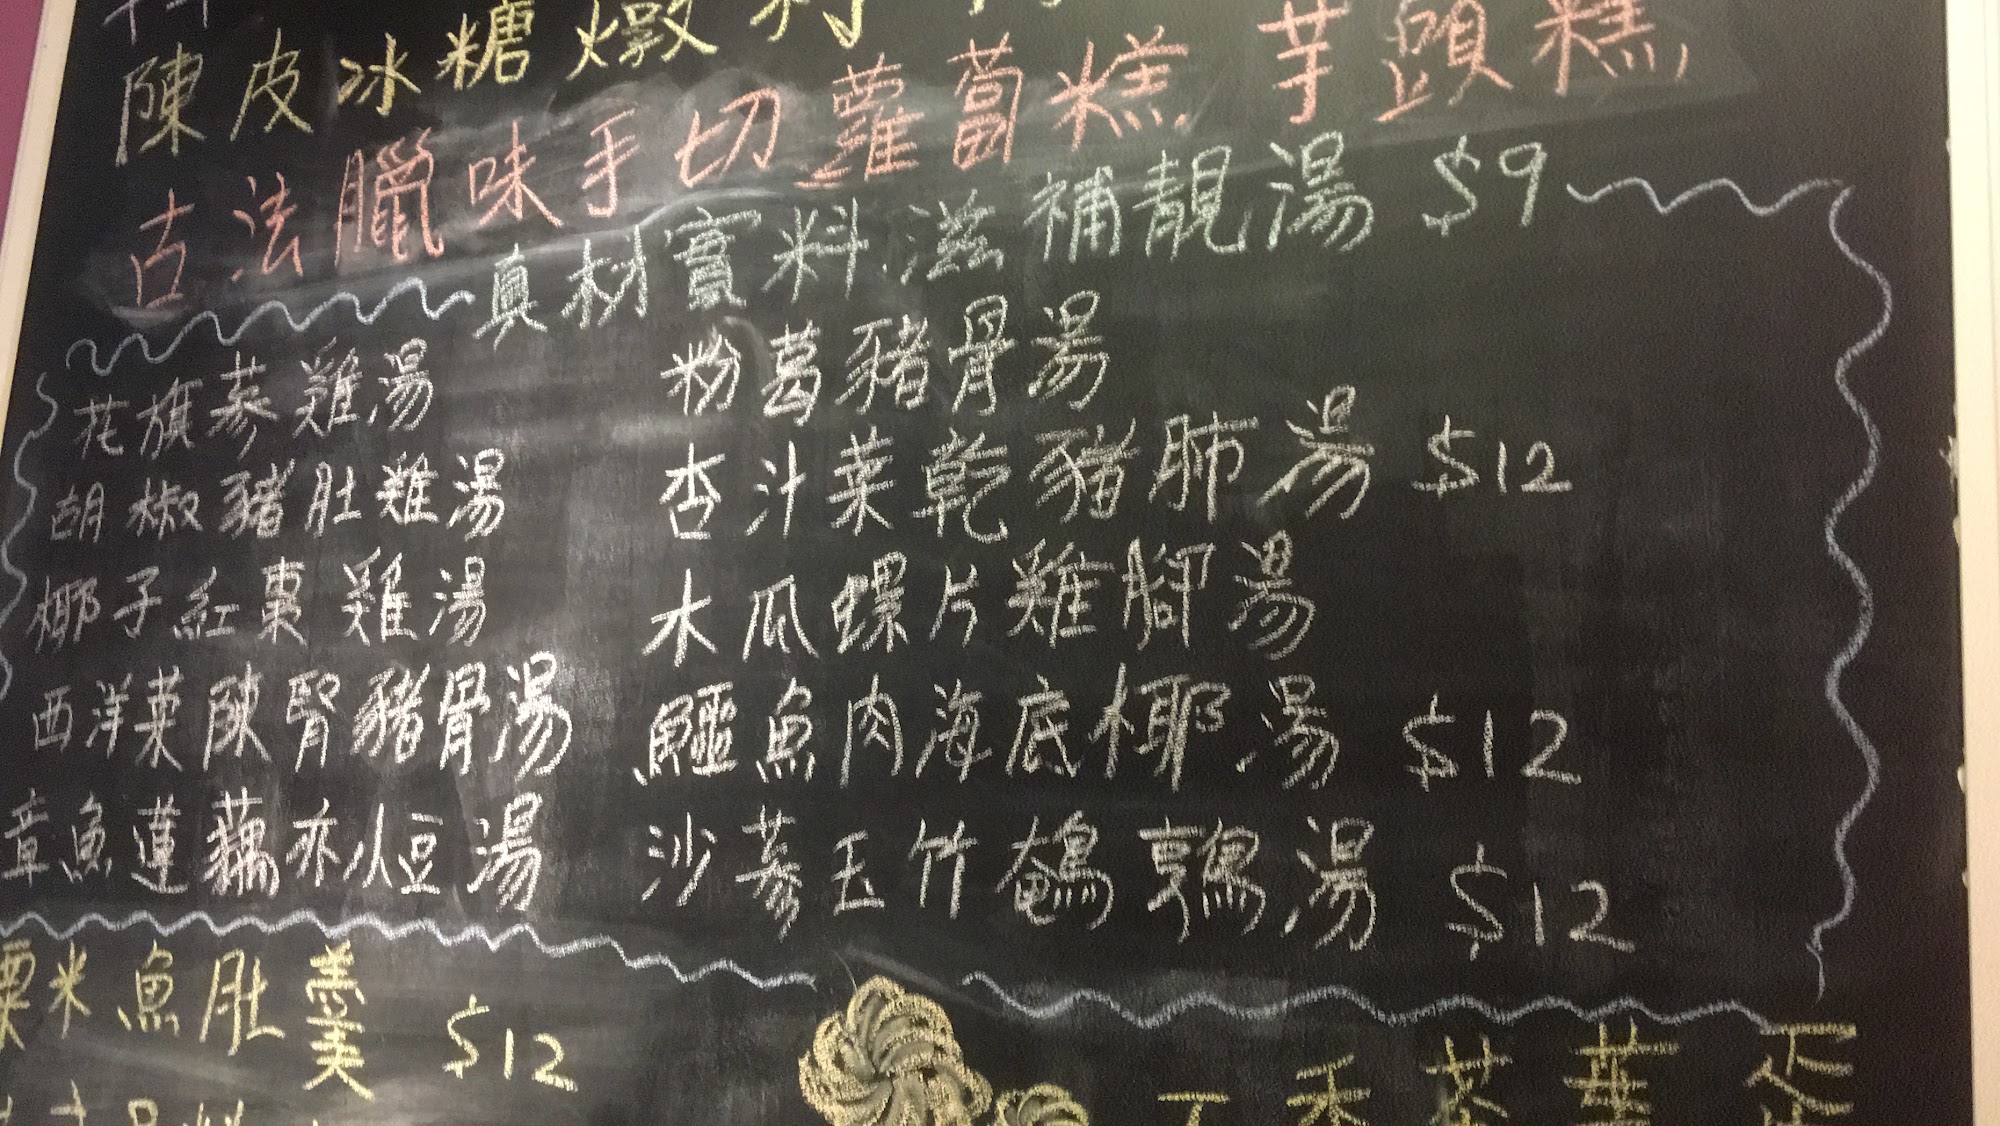 陳皮冰糖燉
古法臘味手切蘿蔔糕 芋頭糕
真材實料滋補靚湯 $9
花旗蔘雞湯
胡椒豬肚雞湯
椰子紅棗雞湯
西洋菜陳腎豬骨湯
章魚蓮藕赤小豆湯
粉葛豬骨湯
杏汁菜乾豬肺湯 $12
木瓜螺片雞腳湯
鱷魚肉海底椰湯 $12
沙蔘玉竹鵪鶉湯 $12
粟米魚肚羹 $12